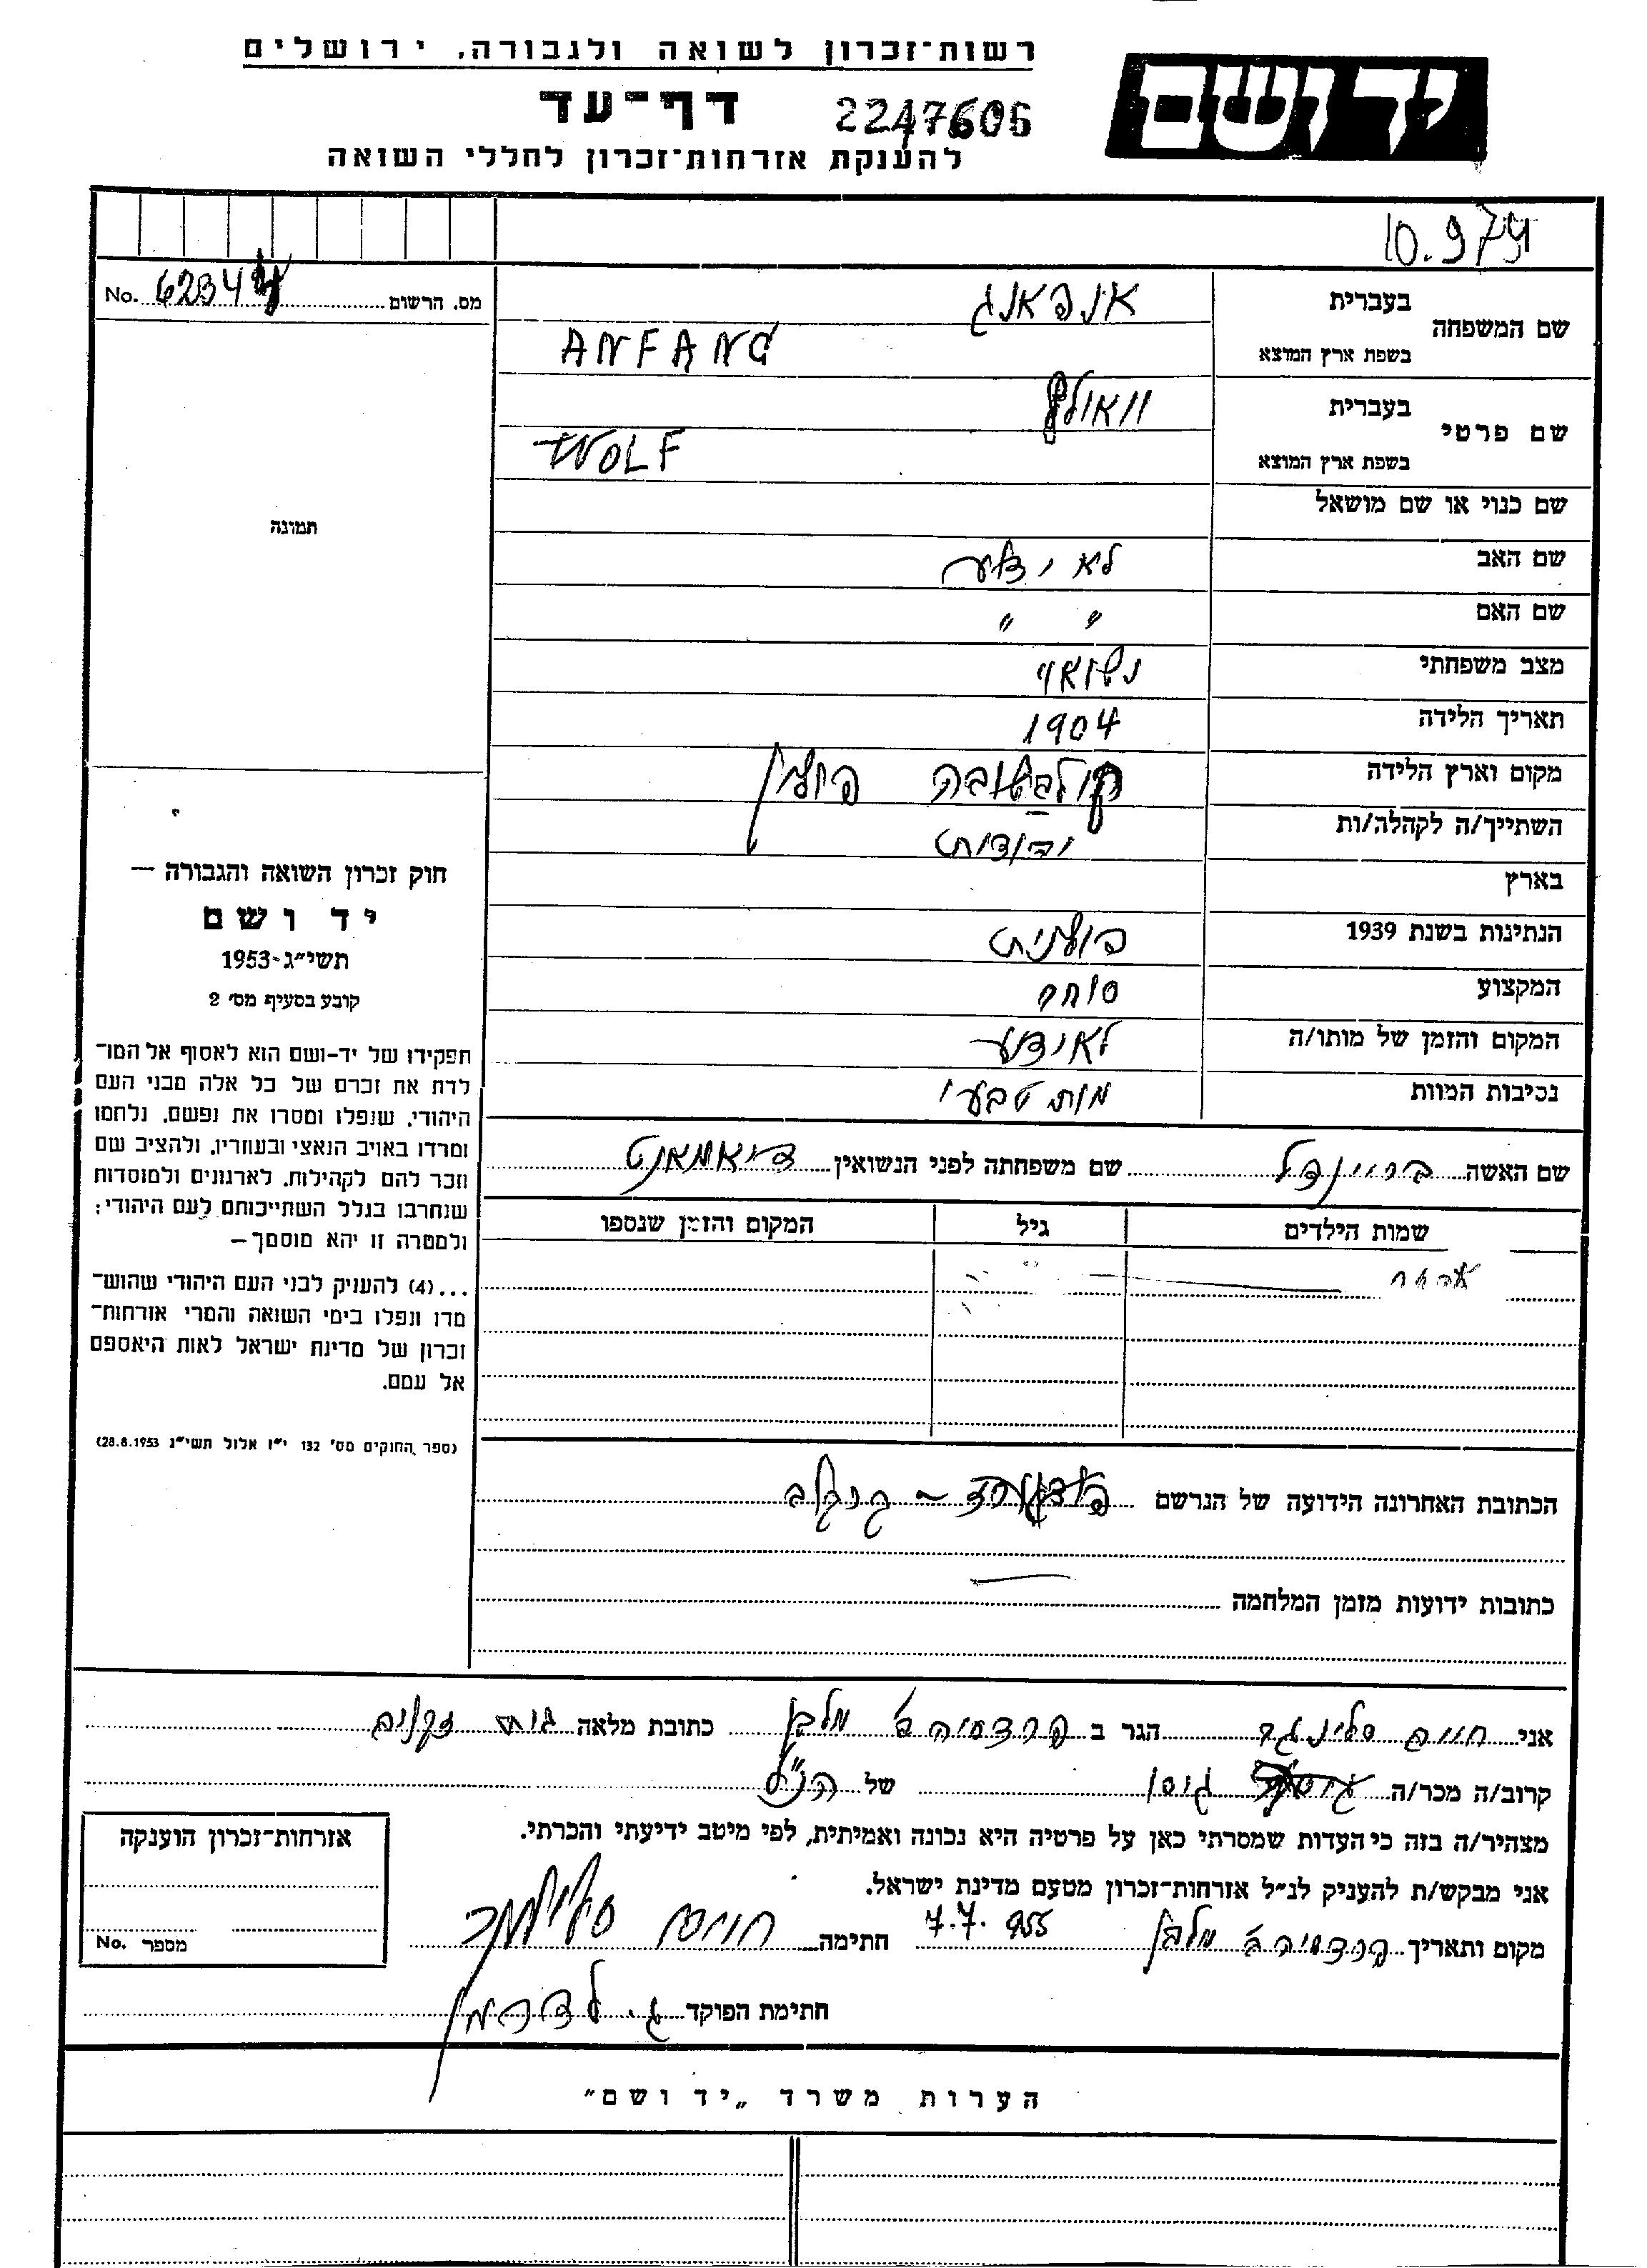 רשות־זכרון לשואה ולגבורה, ירושלים
יד ושם
דף־עד 2247606
להענקת אזרחות־זכרון לחללי השואה
10.974
No. 6234 מס. הרשום
שם המשפחה
בעברית אנפאנג
בשפת ארץ המוצא ANFANG
שם פרטי
בעברית וואולף
בשפת ארץ המוצא WOLF
שם כנוי או שם מושאל
שם האב לא ידוע
שם האם " "
מצב משפחתי נשואי
תאריך הלידה 1904
מקום וארץ הלידה קולבשובה פולין
השתייך/ה לקהלה/ות יהודית
בארץ
הנתינות בשנת 1939 פולנית
המקצוע סוחר
המקום והזמן של מותו/ה לא ידוע
נסיבות המוות מות טבעי
תמונה
חוק זכרון השואה והגבורה —
יד ושם
תשי״ג-1953
קובע בסעיף מס׳ 2
תפקידו של יד-ושם הוא לאסוף אל המו־
לדת את זכרם של כל אלה מבני העם
היהודי, שנפלו ומסרו את נפשם, נלחמו
ומרדו באויב הנאצי ובעוזריו, ולהציב שם
וזכר להם לקהילות, לארגונים ולמוסדות
שנחרבו בגלל השתייכותם לעם היהודי;
ולמטרה זו יהא מוסמך —
...(4) להעניק לבני העם היהודי שהוש־
מדו ונפלו בימי השואה והמרי אזרחות־
זכרון של מדינת ישראל לאות היאספם
אל עמם.
(ספר החוקים מס׳ 132 י״ז אלול תשי״ג 28.8.1953)
שם האשה בריינדל שם משפחתה לפני הנשואין דיאמאנט
שמות הילדים גיל המקום והזמן שנספו
הכתובת האחרונה הידועה של הנרשם
כתובות ידועות מזמן המלחמה
אני חיים הגר ב פרדסיה מלבן כתובת מלאה בית זקנים
קרוב/ה מכר/ה גיסו של הנ״ל
מצהיר/ה בזה כי העדות שמסרתי כאן על פרטיה היא נכונה ואמיתית, לפי מיטב ידיעתי והכרתי.
אני מבקש/ת להעניק לנ״ל אזרחות־זכרון מטעם מדינת ישראל.
מקום ותאריך פרדסיה מלבן 7.7.955 חתימה חיים
חתימת הפוקד ג. לדרמן
אזרחות־זכרון הוענקה
מספר No.
הערות משרד „יד ושם"